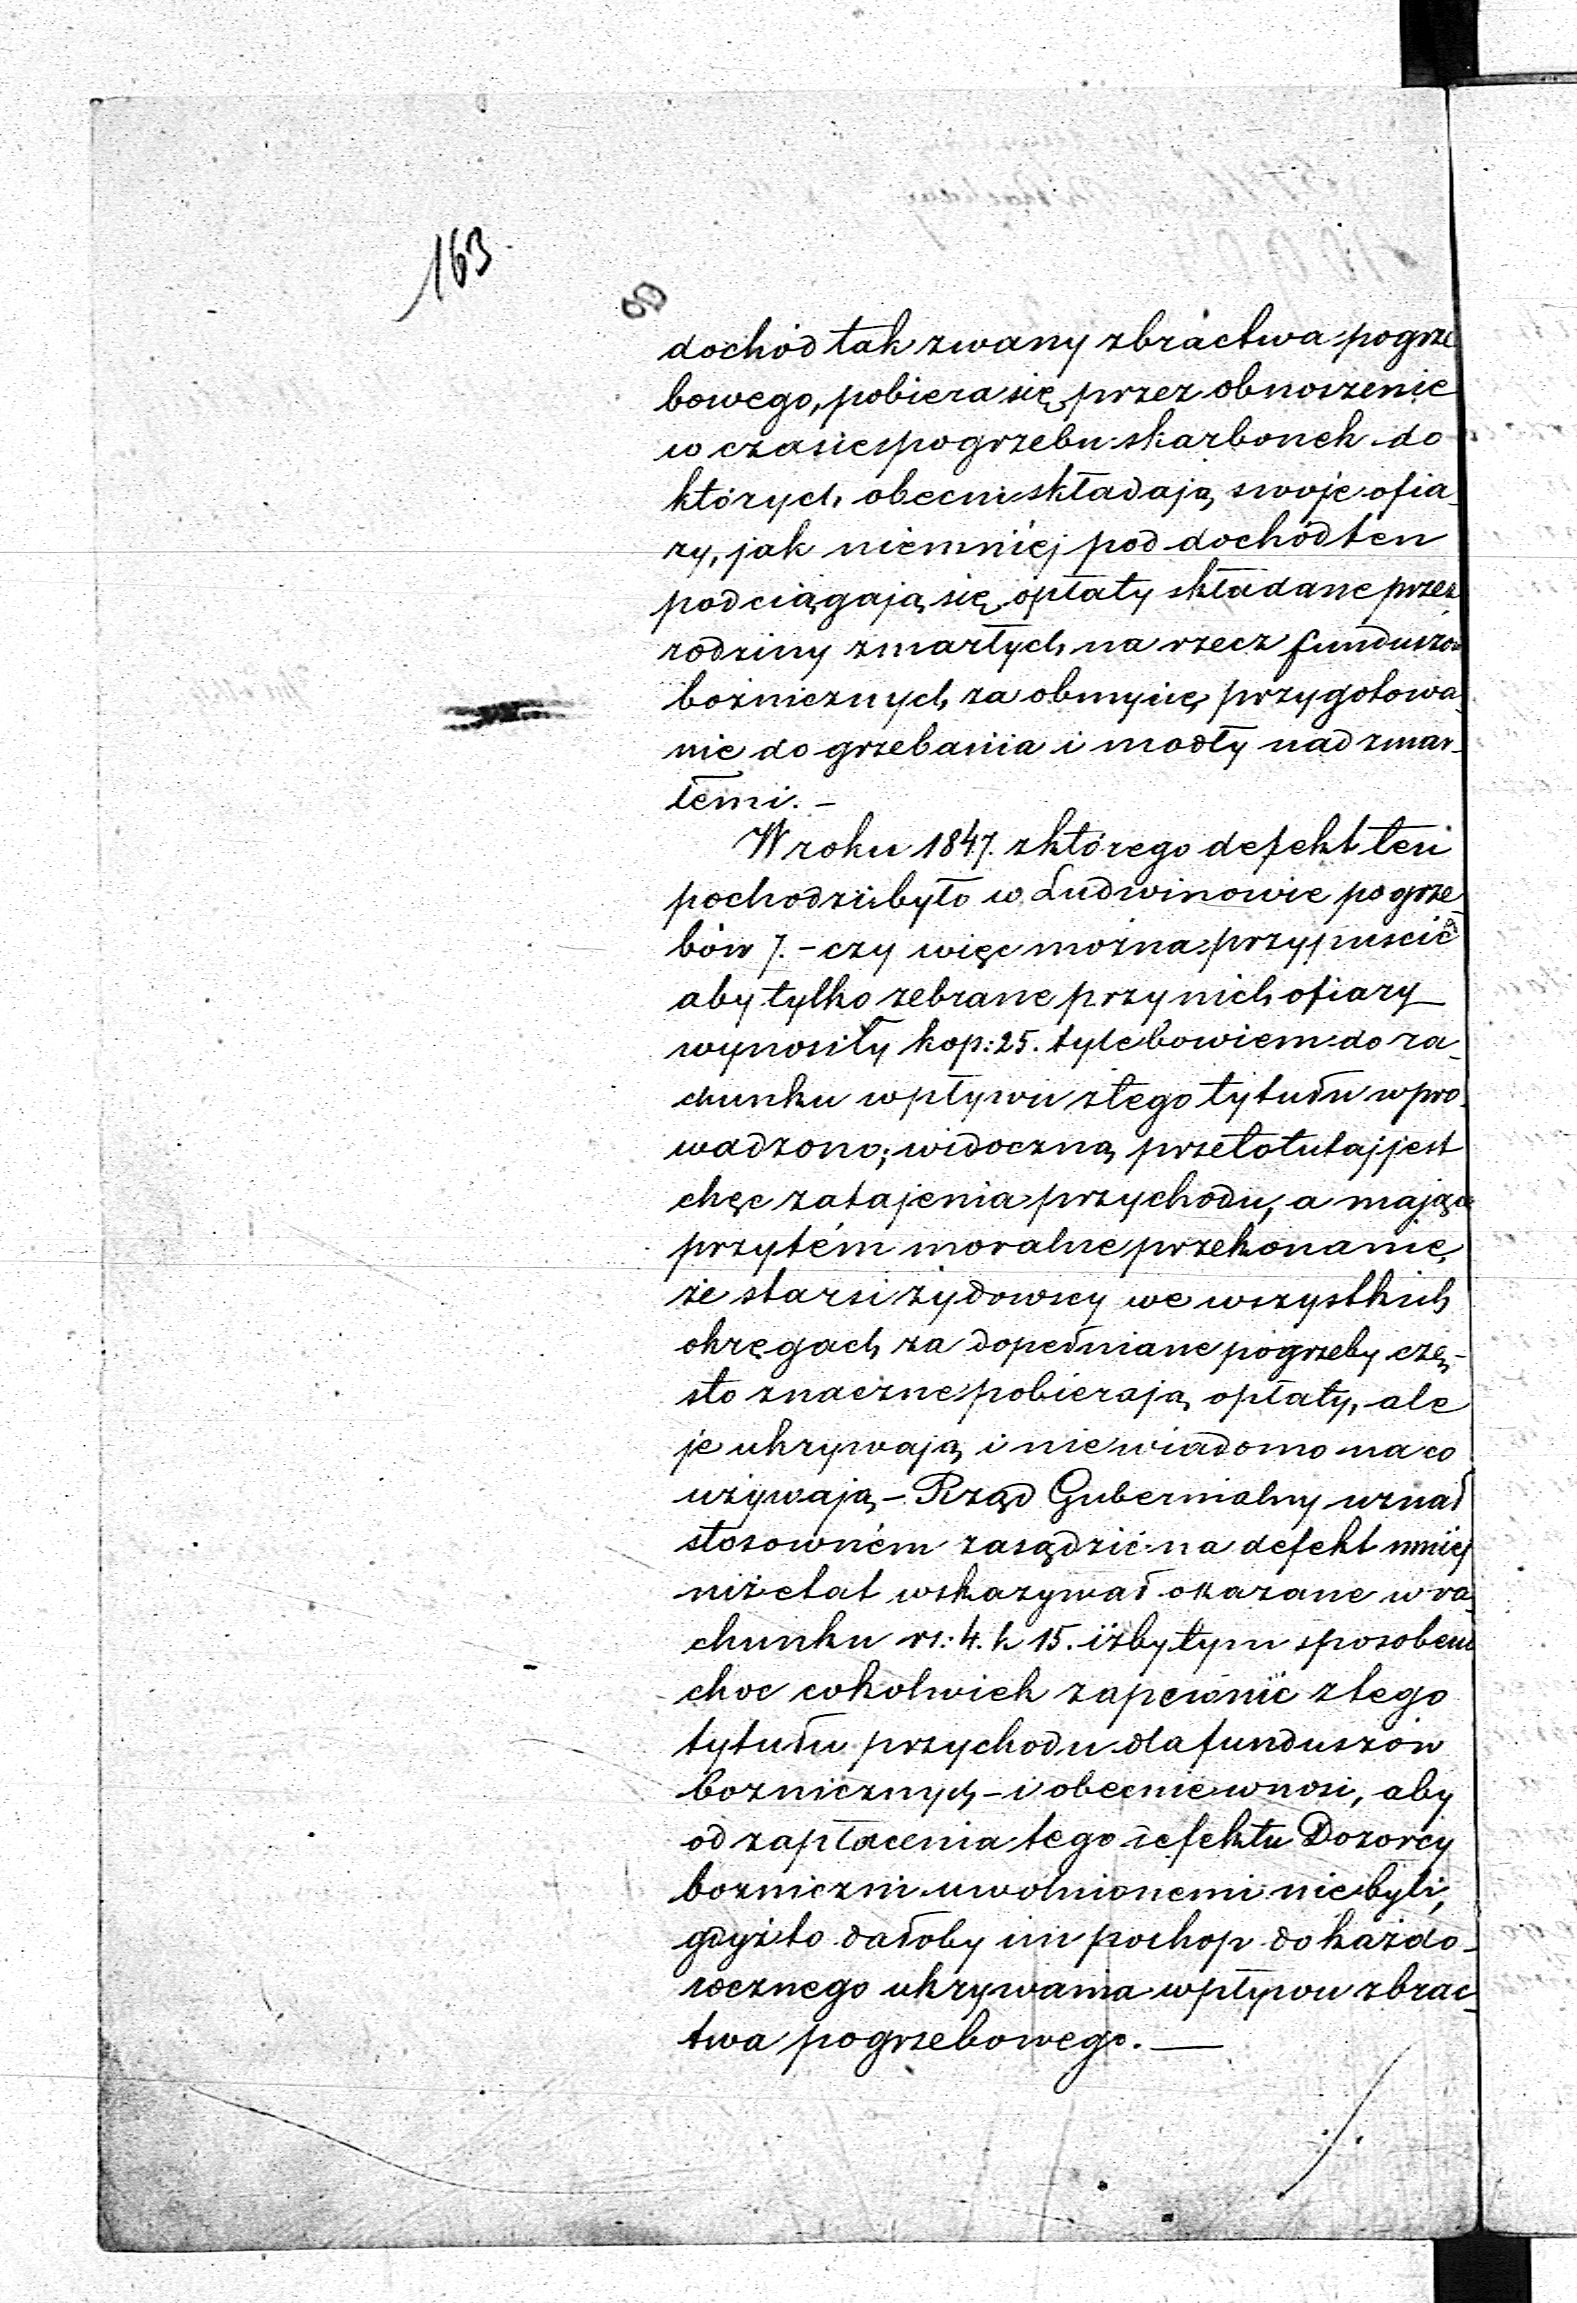 163
dochód tak zwany z bractwa pogrze
bowego, pobiera się przez obnoszenie
w czasie pogrzebu skarbonek do
których obecni składają swoje ofia-
ry, jak niemniéj pod dochód ten
podciągają się opłaty składane przez
rodziny zmarłych na rzecz funduszów
bożnicznych za obmycie, przygotowa-
nie do grzebania i modły nad zmar-
łemi. –
W roku 1847. z którego defekt ten
pochodzi było w Ludwinowie pogrze-
bów 7. – czy więc można przypuścić
aby tylko zebrane przy nich ofiary
wynosiły kop: 25. tyle bowiem do ra-
chunku wpływu z tego tytułu wpro-
wadzono; widoczną przeto tutaj jest
chęc zatajenia przychodu, a mając
przytém moralne przekonanie,
że starsi żydowscy we wszystkich
okręgach za dopełniane pogrzeby czę-
sto znaczne pobierają opłaty, ale
je ukrywają i niewiadomo na co
używają – Rząd Gubernialny uznał
stosowném zasądzić na defekt mniéj
niż etat wskazywał okazane w ra-
chunku rs: 4. k 15. iżby tym sposobem
choc cokolwiek zapewnić z tego
tytułu przychodu dla funduszów
bożnicznych – i obecnie wnosi, aby
od zapłacenia tego defektu Dozorcy
bożniczni uwolnionemi nie byli,
gdyż to dałoby im pochop do każdo-
rocznego ukrywania wpływu z brac-
twa pogrzebowego. —
./.